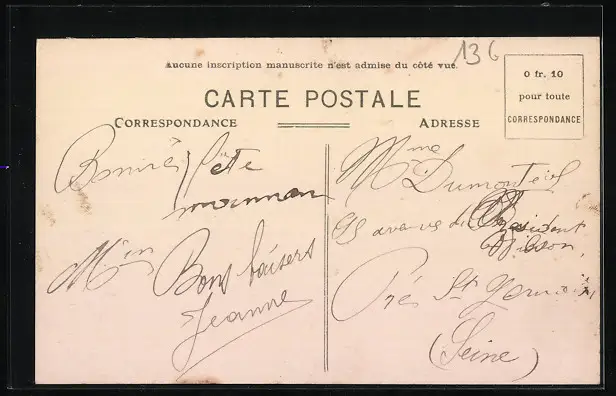 136
Aucune inscription manuscrite n'est admise du côté vue.
CARTE POSTALE
0 fr. 10
pour toute
CORRESPONDANCE
CORRESPONDANCE
ADRESSE
fête
maman
Bons baisers
Jeanne
Mme Dumonteil
avenue du Président
Wilson,
Prés St Germain
(Seine)